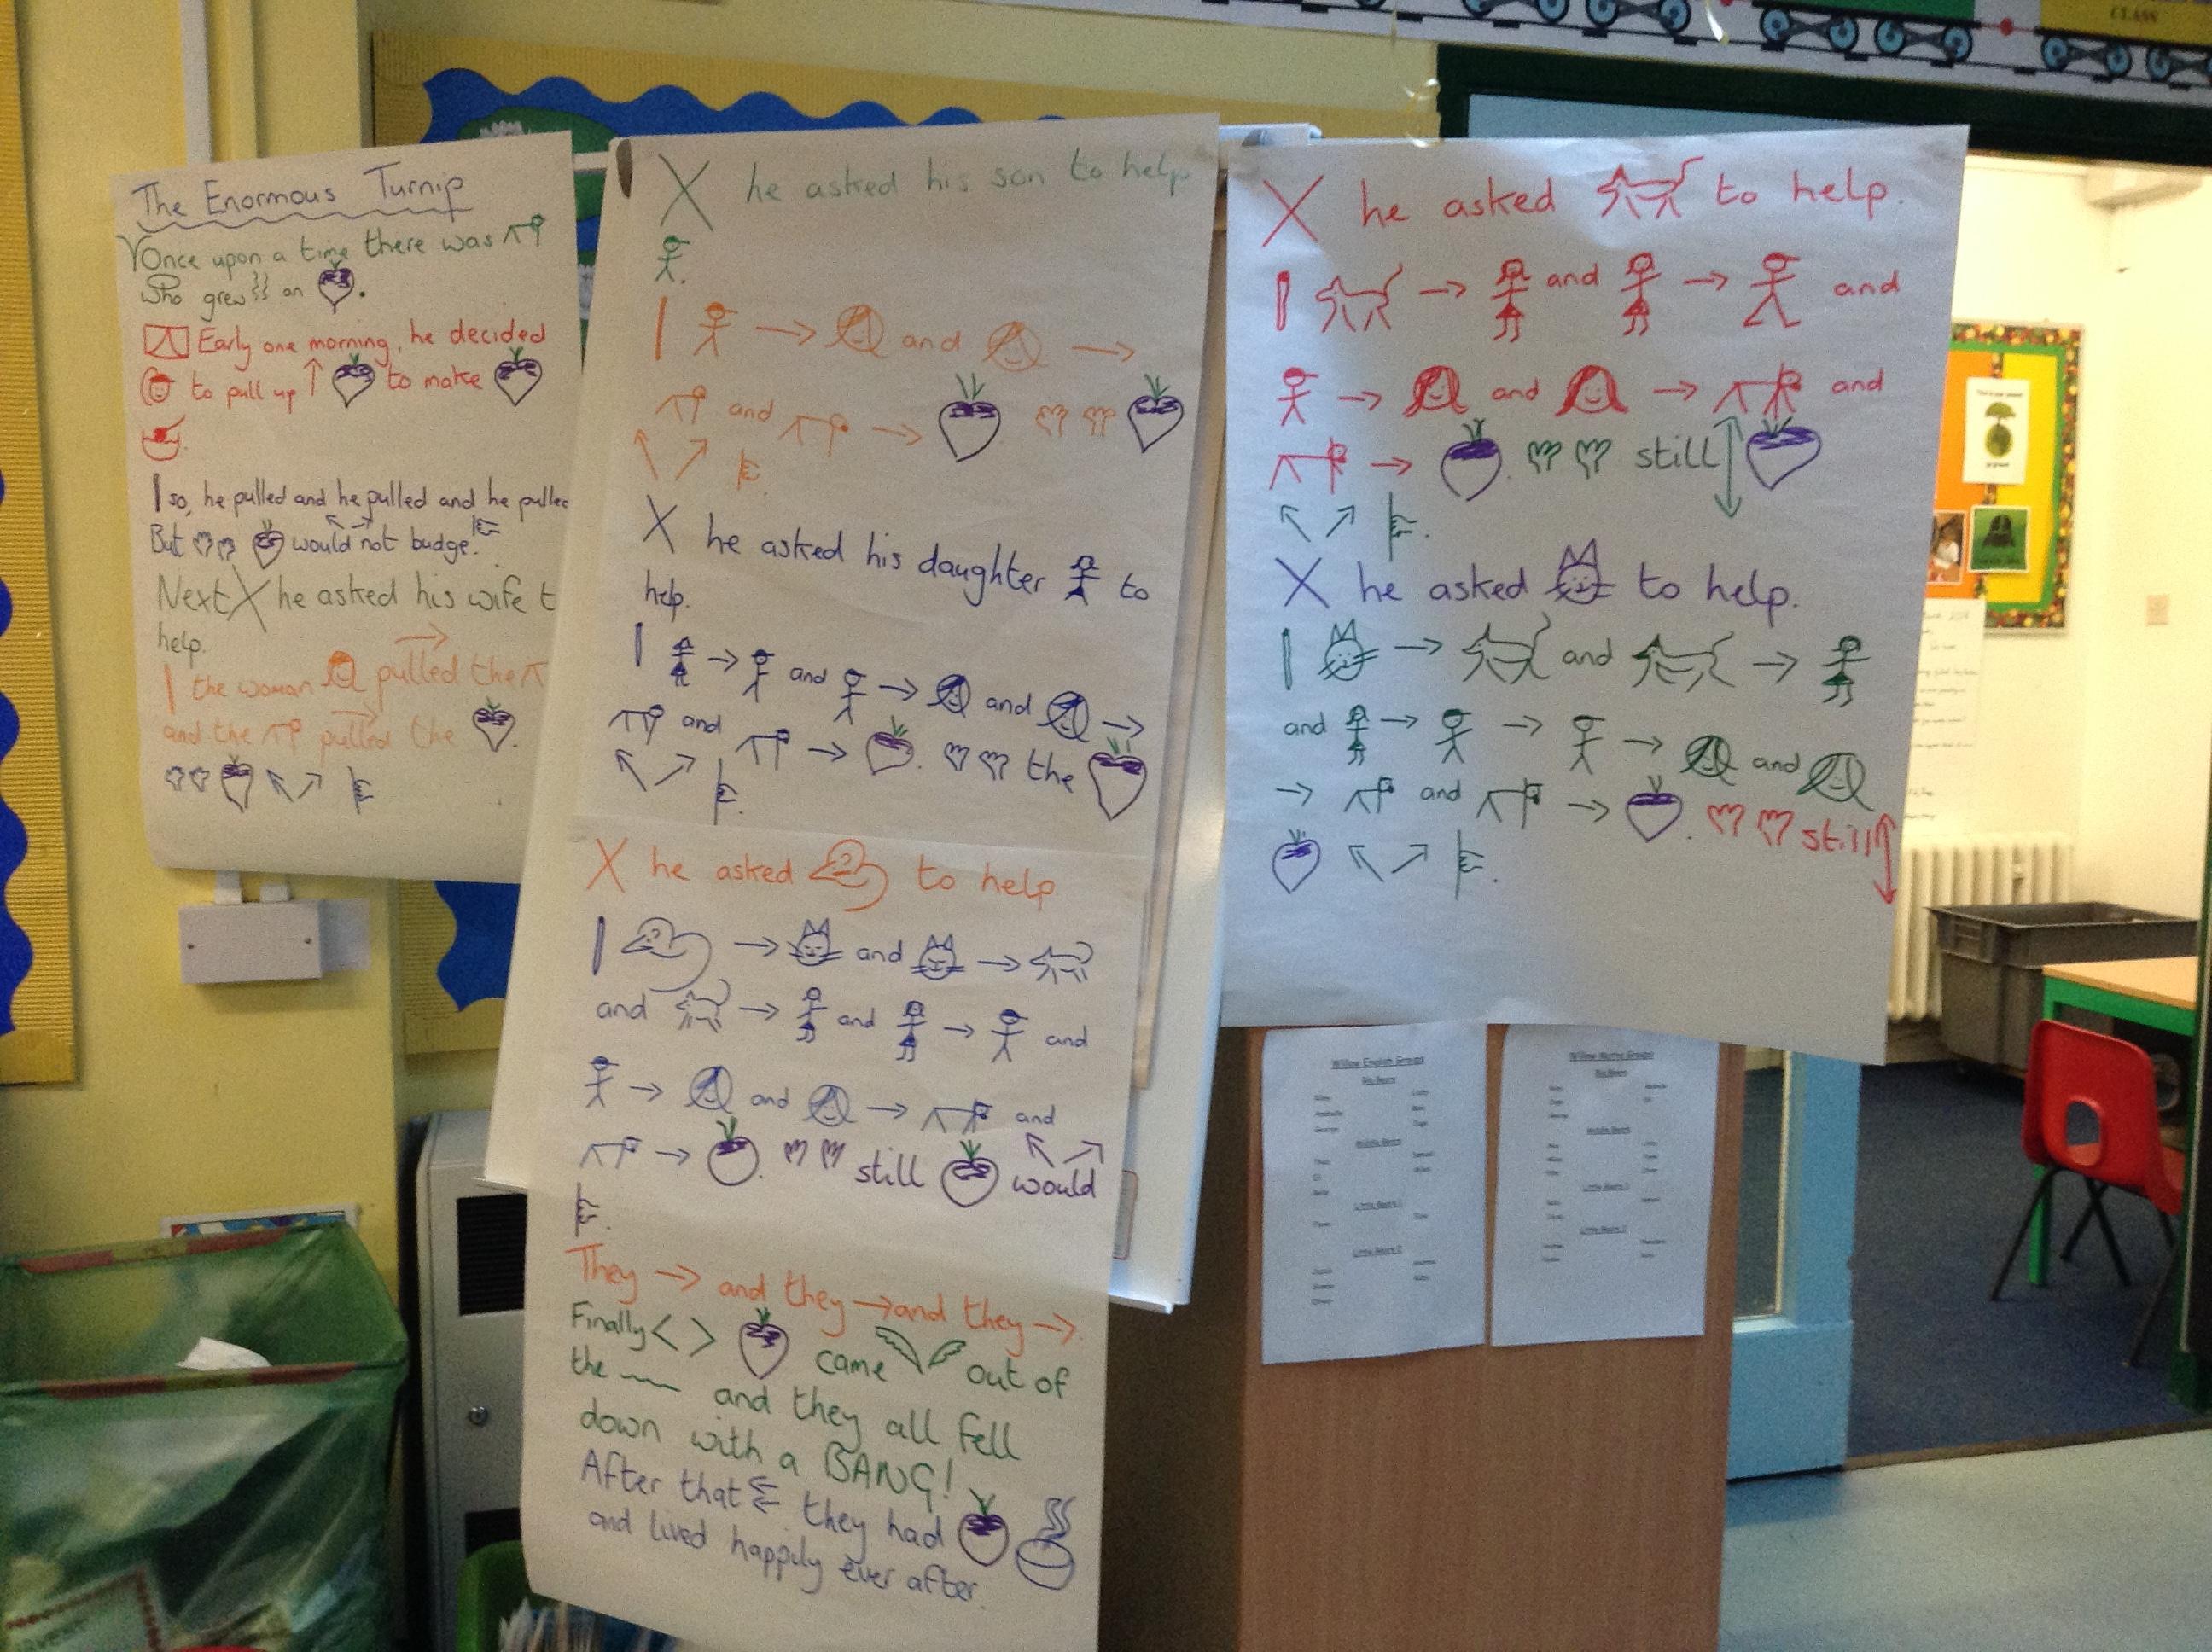 The Enormous Turnip
Once upon a time there was
who grew an .
Early one morning, he decided
to pull up to make
.
so, he pulled and he pulled and he pulled
But would not budge.
Next he asked his wife t
help.
the woman pulled the
and the pulled the .
he asked his son to help
.
and
and
.
he asked his daughter to
help.
and and
and . the
.
he asked to help
and
and and and
and and
. still would
.
They and they and they .
Finally came out of
the and they all fell
down with a BANG!
After that they had
and lived happily ever after.
he asked to help.
and and
and and
. still
.
he asked to help.
and
and and
and . still
.
CLASS
Willow English Groups
Big Bears
Middle Bears
Little Bears 1
Little Bears 2
Willow Maths Groups
Big Bears
Middle Bears
Little Bears 1
Little Bears 2